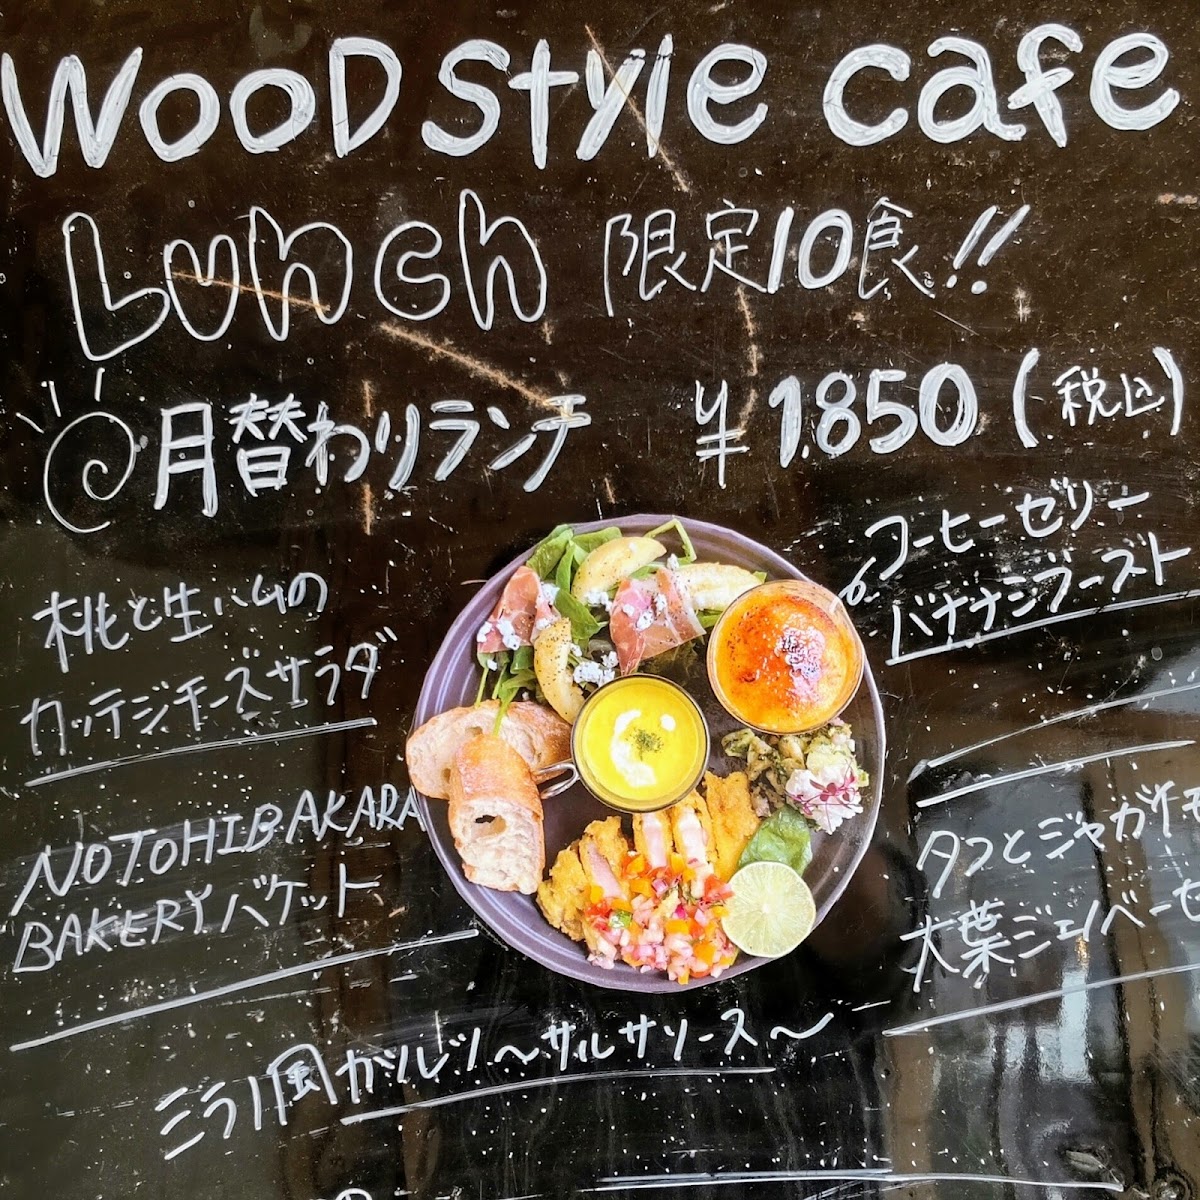 WOOD STYLE cafe
Lunch 限定10食!!
月替わりランチ ¥1.850(税込)
コーヒーゼリー
バナナジブースト
桃と生ハムの
カッテジチーズサラダ
NOTOHIBAKARA
BAKERYバケット
タコとジャガイモ
大葉ジェノベーゼ
ミラノ風カツレツ〜サルサソース〜